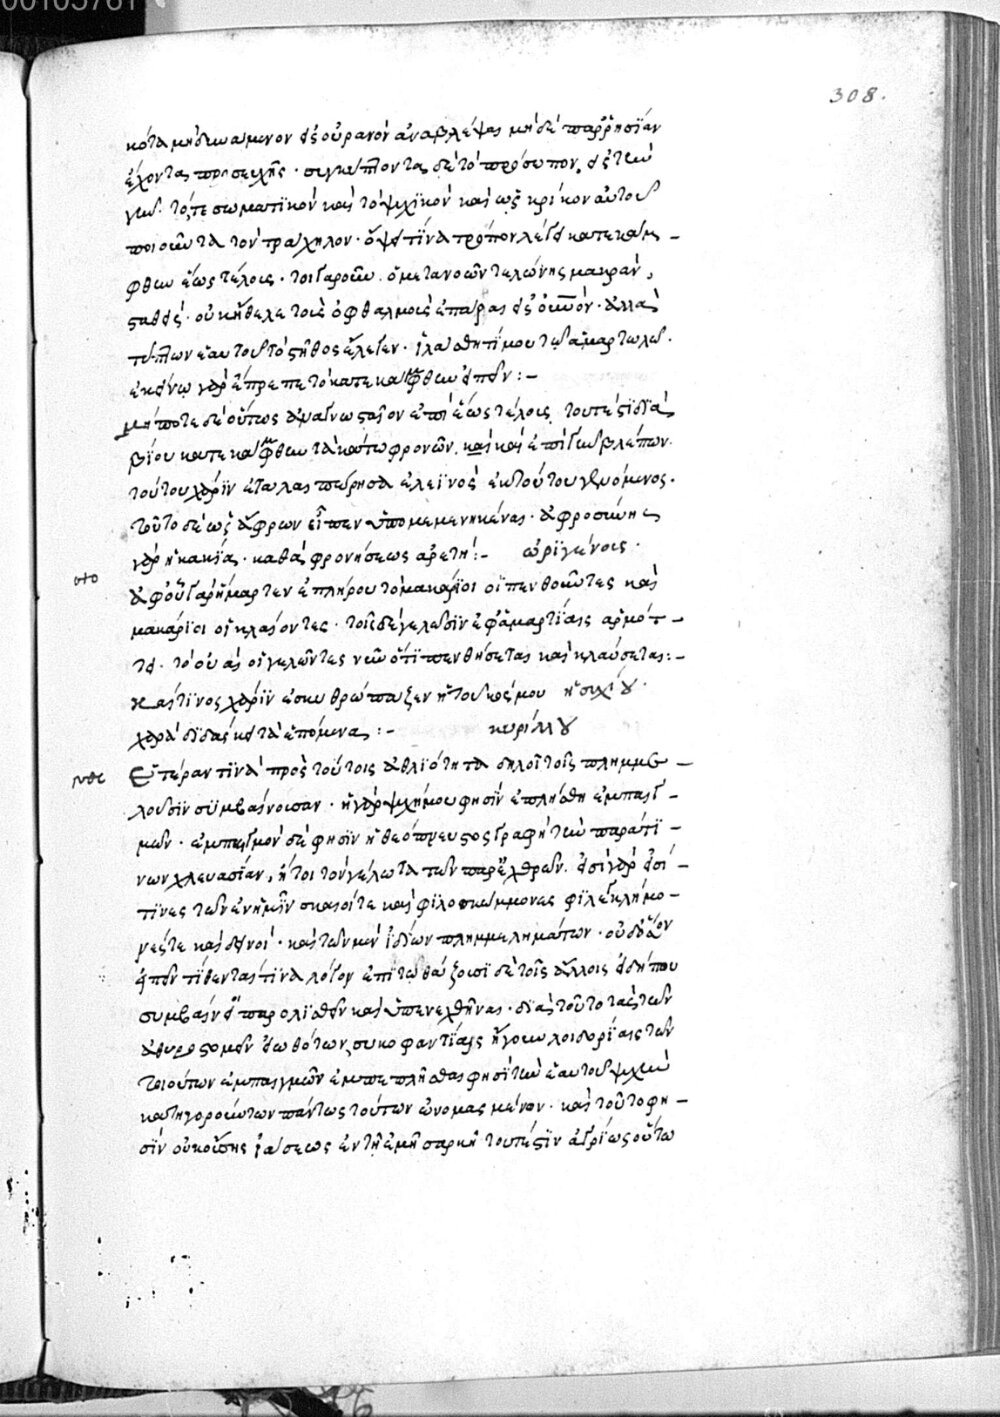 308.
κότα μὴ δυνάμενον εἰς οὐρανὸν ἀναβλέψαι μὴ δὲ παρρησίαν
ἔχοντα προσευχῆς· συγκύπτοντα δὲ τὸ πρόσωπον εἰς τὴν
γῆν· τό, τε σωματικὸν καὶ τὸ ψυχικὸν καὶ ὡς κρίκον αὐτοῦ
ποιοῦντα τὸν τράχηλον· τίνα τρόπον λέγει κατεκάμ-
φθην ἕως τέλους· τοιγαροῦν ὁ μετανοῶν τελώνης μακρὰν
σταθεὶς· οὐκ ἤθελε τοὺς ὀφθαλμοὺς ἐπάραι εἰς οὐνόν· ἀλλὰ
τύπτων ἑαυτοῦ τὸ στῆθος ἔλεγεν· ἱλάσθητί μου τῷ ἁμαρτωλῷ·
ἐκείνῳ γὰρ ἔπρεπε τὸ κατεκάμφθην εἰπεῖν :-
μήποτε δὲ οὕτως ἀναγνωστέον ἐπὶ ἕως τέλους τουτέστι διὰ
βίου κατεκάμφθην τὰ κάτω φρονῶν καὶ καὶ ἐπὶ γῆν βλέπων.
τούτου χάριν ἐταλαιπώρησα ἐλεεινὸς ἐκ τούτου γενόμενος·
τοῦτο δὲ ὡς ἄφρων εἶπεν ὑπομεμενηκέναι· ἀφροσύνης
γὰρ ἡ κακία· καθὰ φρονήσεως ἀρετή :- ὠριγένους·
ἀφ' οὗ γὰρ ἥμαρτεν ἐπλήρου τὸ μακάριοι οἱ πενθοῦντες καὶ
μακάριοι οἱ κλαίοντες· τοῖς δὲ γελῶσιν ἐφ' ἁμαρτίαις ἁρμότ-
τει· τὸ οὐαὶ οἱ γελῶντες νῦν ὅτι πενθήσεται καὶ κλαύσεται :-
καὶ τίνος χάριν ἐσκυθρώπαζεν ἢ τοῦ κόσμου ἡσυχίου·
χαρὰ διδάσκει τὰ ἑπόμενα :- κυρίλλου
Ἑτέραν τινὰ πρὸς τούτοις ἀθλιότητα δηλοῖ τοῖς πλημμε-
λοῦσιν συμβαίνουσαν· ἡ γὰρ ψυχή μου φησὶν ἐπλήσθη ἐμπαιγ-
μῶν· ἐμπαιγμὸν δέ φησιν ἡ θεόπνευστος γραφὴ τὴν παρά τι-
νων χλευασίαν, ἤτοι τὸν γέλωτα τῶν παρ' ἐχθρῶν. εἰσὶ γὰρ εἰσί
τινες τῶν ἐν ἡμῖν σκαιοί τε καὶ φιλοσκώμμονες φιλεγκλήμο-
νές τε καὶ δεινοί· καὶ τῶν μὲν ἰδίων πλημμελημάτων· οὐδ'
εἰπεῖν τίθενται τινα λόγον ἐπιτωθάζουσι δὲ τοῖς ἄλλοις εἰ δή που
συμβαίνει παρολισθεῖν καὶ ὑπενεχθῆναι· διὰ τοῦτο ταῖς τῶν
ἀθυροστομεῖν εἰωθότων συκοφαντίαις ἤγουν λοιδορίαις τῶν
τοιούτων ἐμπαιγμῶν ἐμπεπλῆσθαι φησὶ τὴν ἑαυτοῦ ψυχὴν
κατηγορούντων πάντως τούτων ὠνομασμένον· καὶ τοῦτο φη-
σὶν οὐκ οὔσης ἰάσεως ἐν τῇ ἐμῇ σαρκὶ τουτέστιν ἀγρίως οὕτω